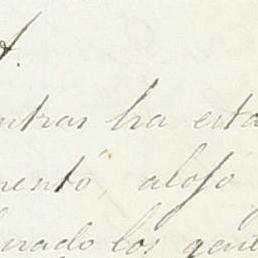 ntras ha esta
mento alojo
nado los gent